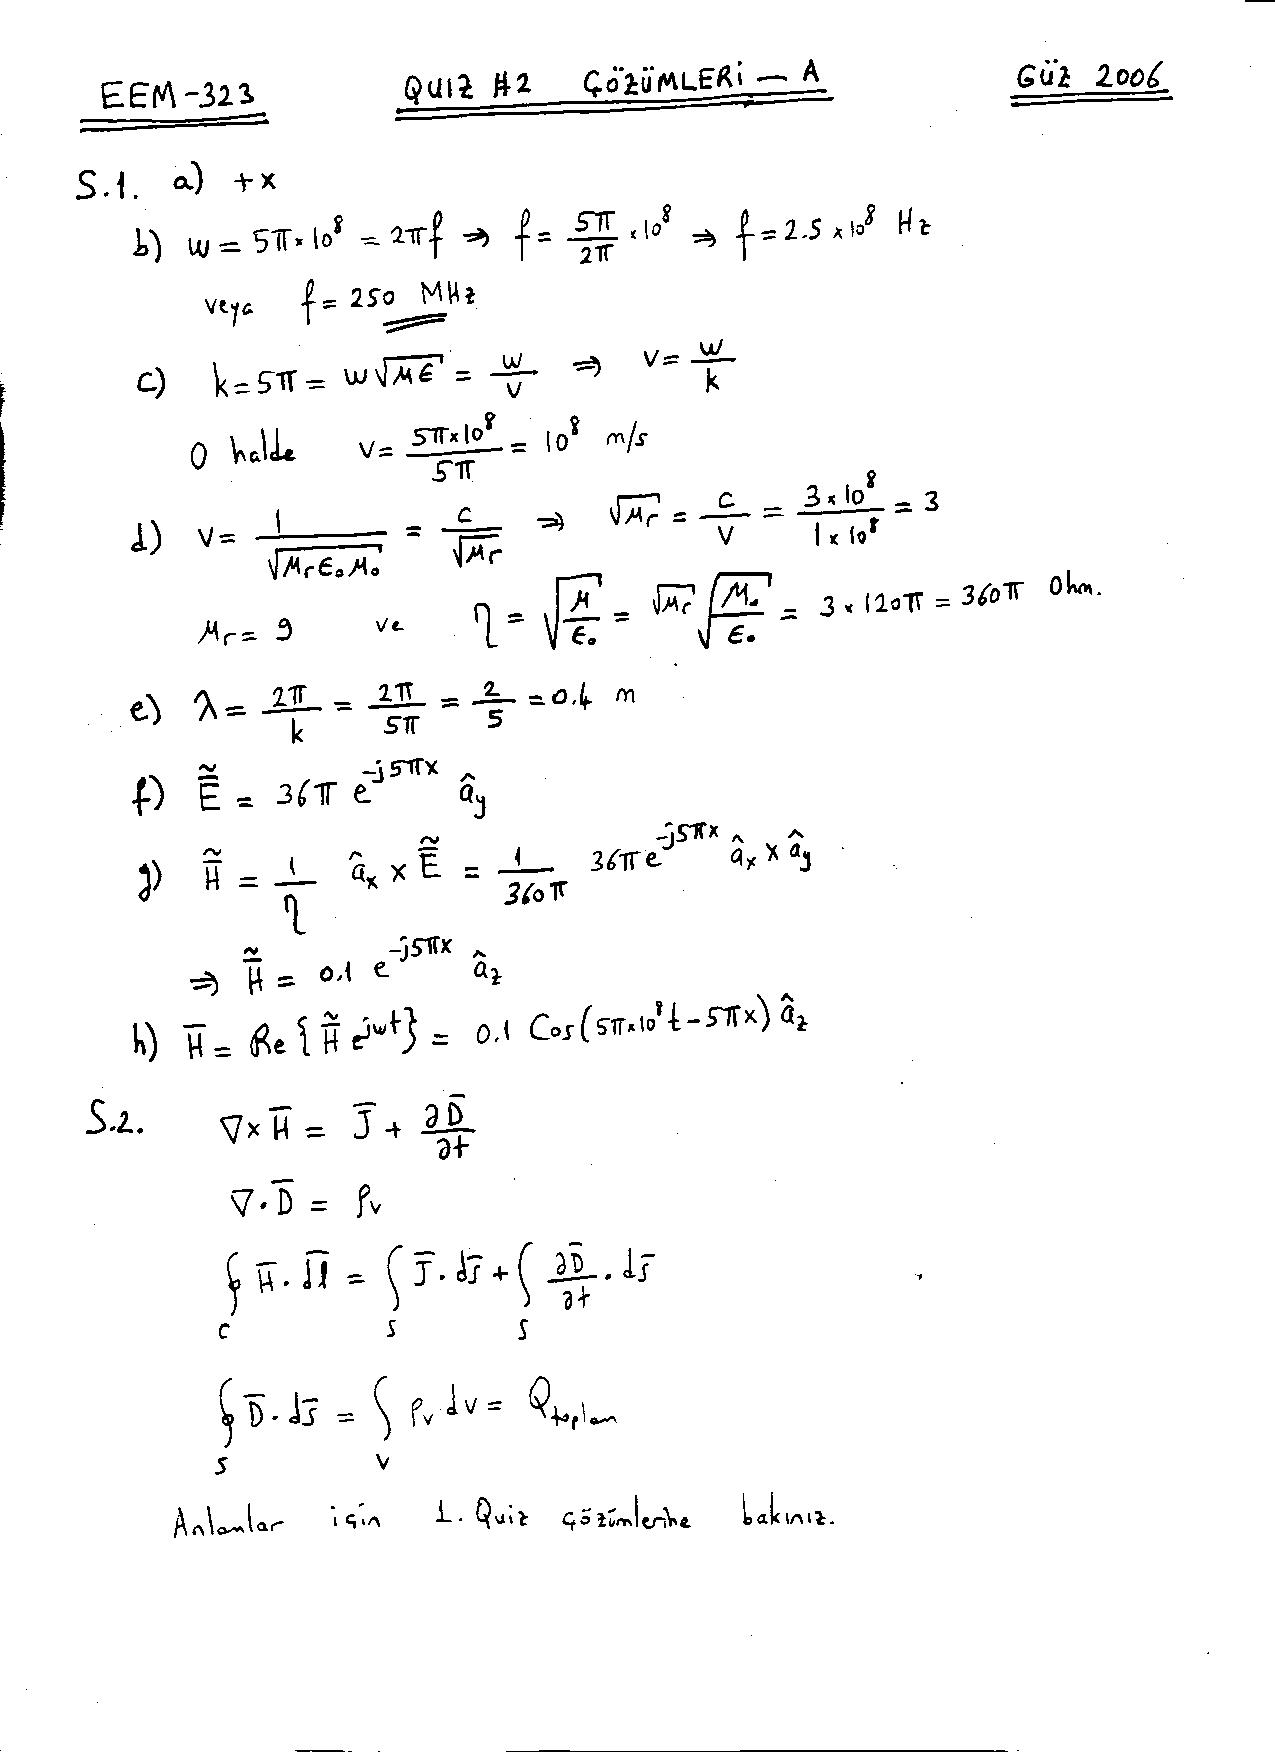 EEM-323 QUIZ #2 ÇÖZÜMLERİ - A GÜZ 2006
S.1. a) +x
b) w = 5π×10⁸ = 2πf ⇒ f = 5π/2π ×10⁸ ⇒ f = 2.5 × 10⁸ Hz
veya f = 250 MHz
c) k = 5π = w√με = w/v ⇒ v = w/k
O halde v = 5π×10⁸/5π = 10⁸ m/s
d) v = 1/√μrε₀μ₀ = c/√μr ⇒ √μr = c/v = 3×10⁸/1×10⁸ = 3
μr = 9 ve η = √μ/ε₀ = √μr √μ₀/ε₀ = 3 × 120π = 360π Ohm.
e) λ = 2π/k = 2π/5π = 2/5 = 0.4 m
f) Ẽ̄ = 36π e^-j5πx ây
g) H̄̃ = 1/η âx × Ẽ̄ = 1/360π 36π e^-j5πx âx × ây
⇒ H̄̃ = 0.1 e^-j5πx âz
h) H̄ = Re{H̄̃ e^jwt} = 0.1 Cos(5π×10⁸t - 5πx) âz
S.2. ∇×H̄ = J̄ + ∂D̄/∂t
∇·D̄ = ρv
∮c H̄·dl̄ = ∫s J̄·ds̄ + ∫s ∂D̄/∂t · ds̄
∮s D̄·ds̄ = ∫v ρv dv = Qtoplam
Anlamlar için 1. Quiz çözümlerine bakınız.